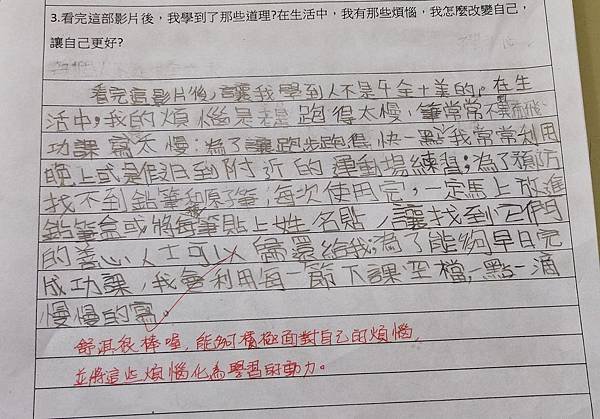 3.看完這部影片後，我學到了那些道理?在生活中，我有那些煩惱，我怎麼改變自己，
讓自己更好?
看完這影片後，讓我學到人不是十全十美的。在生
活中，我的煩惱是老是跑得太慢、筆常常不翼而飛、
功課寫太慢：為了讓跑步跑得快一點，我常常利用
晚上或是假日到附近的運動場練習；為了預防
找不到鉛筆和原子筆，每次使用完，一定馬上放進
鉛筆盒或將每筆貼上姓名貼，讓找到它們
的善心人士可以歸還給我；為了能夠早日完
成功課，我會利用每一節下課空檔，一點一滴
慢慢的寫。
舒淇很棒喔，能夠積極面對自己的煩惱，
並將這些煩惱化為學習的動力。